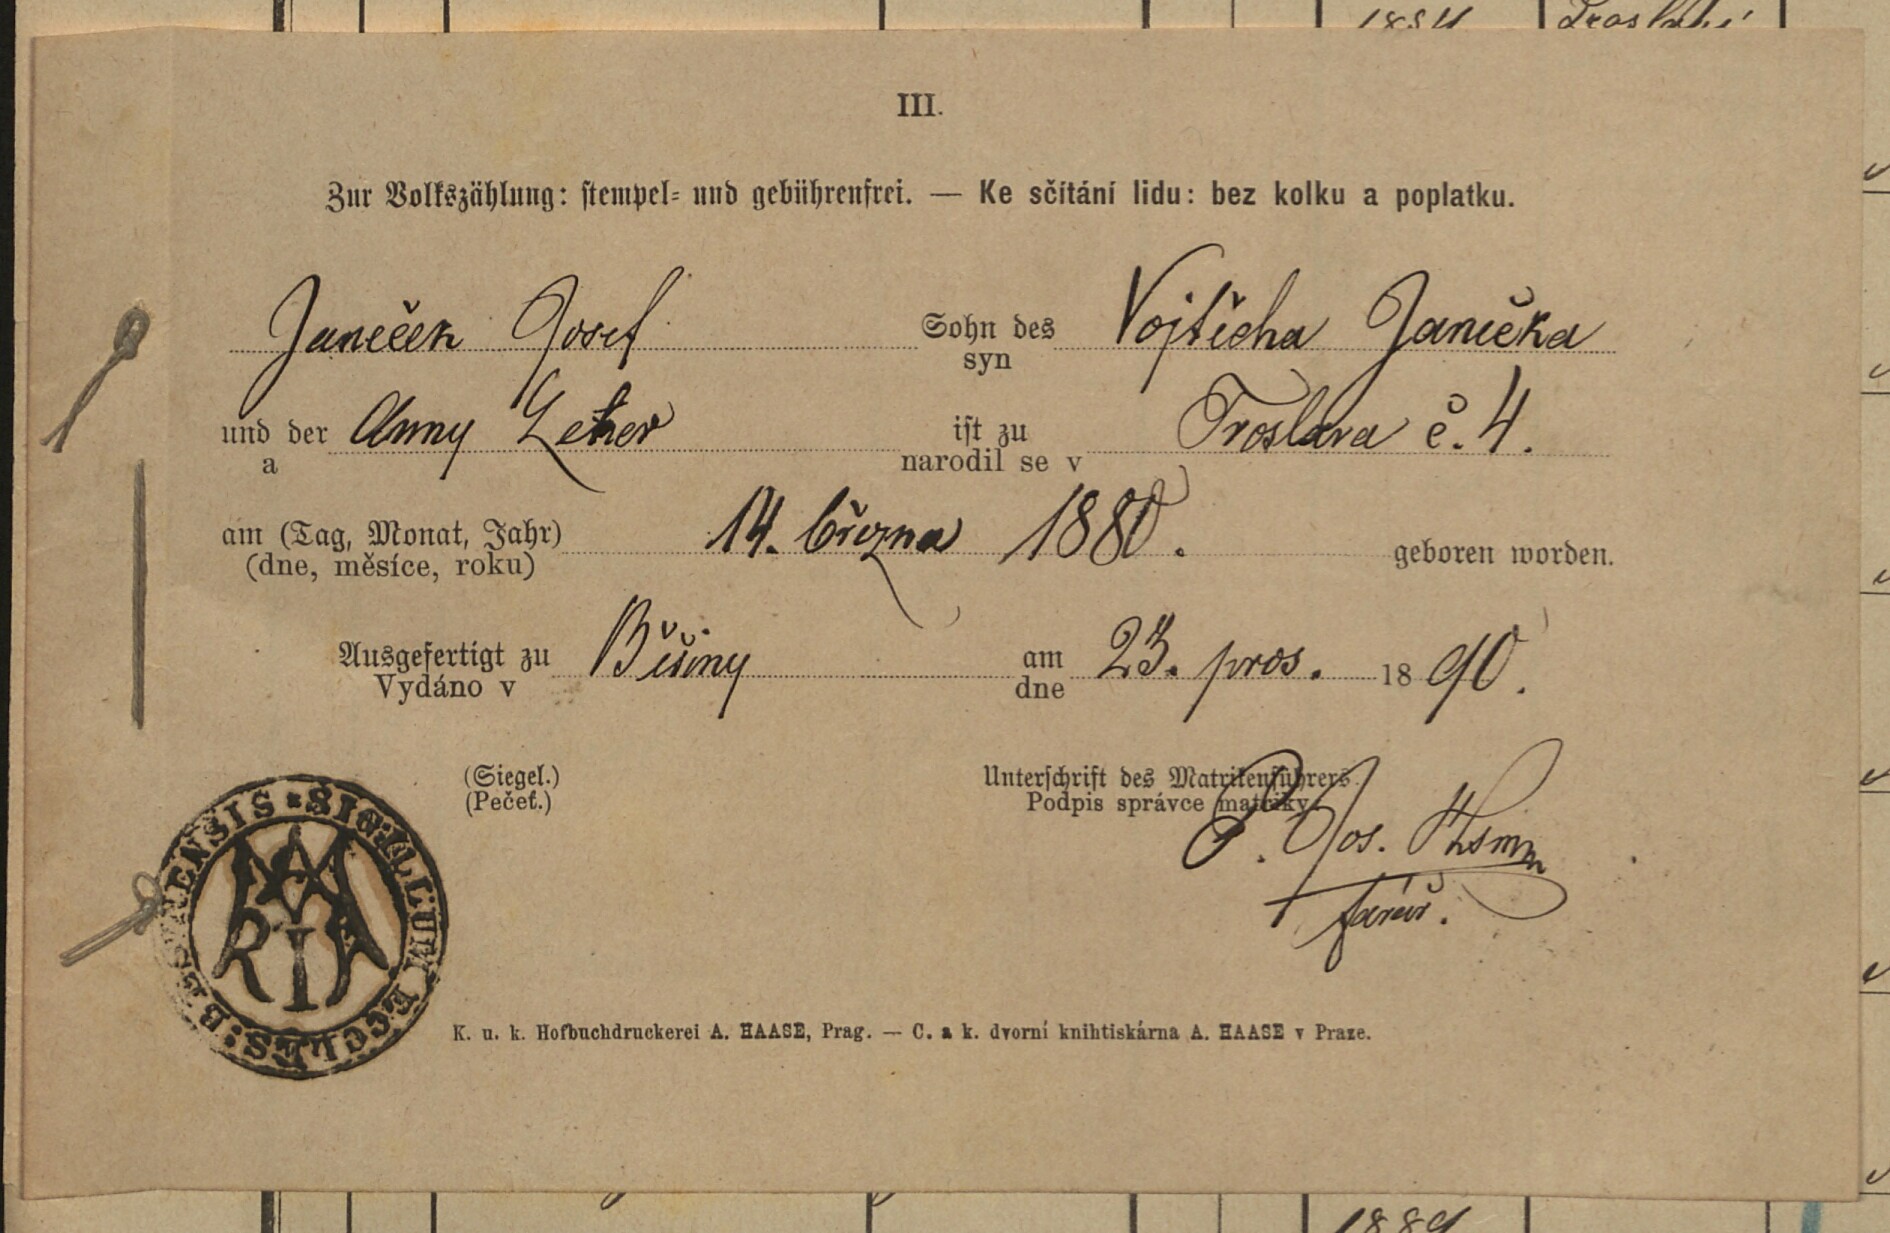 1884
III.
Zur Volkszählung: stempel- und gebührenfrei. — Ke sčítání lidu: bez kolku a poplatku.
Janeček Josef Sohn des Vojtěcha Janečka
syn
und der Anny Leher ist zu Troslava č. 4.
a narodil se v
am (Tag, Monat, Jahr) 14. března 1880. geboren worden.
(dne, měsíce, roku)
Ausgefertigt zu Běšiny am 23. pros. 1890.
Vydáno v dne
(Siegel.) Unterschrift des Matrikenführers.
(Pečeť.) Podpis správce matriky.
P. Jos.
farář.
SIGILLUM ECCLES: BESSINENSIS
MARIA
K. u. k. Hofbuchdruckerei A. HAASE, Prag. — C. a k. dvorní knihtiskárna A. HAASE v Praze.
1889